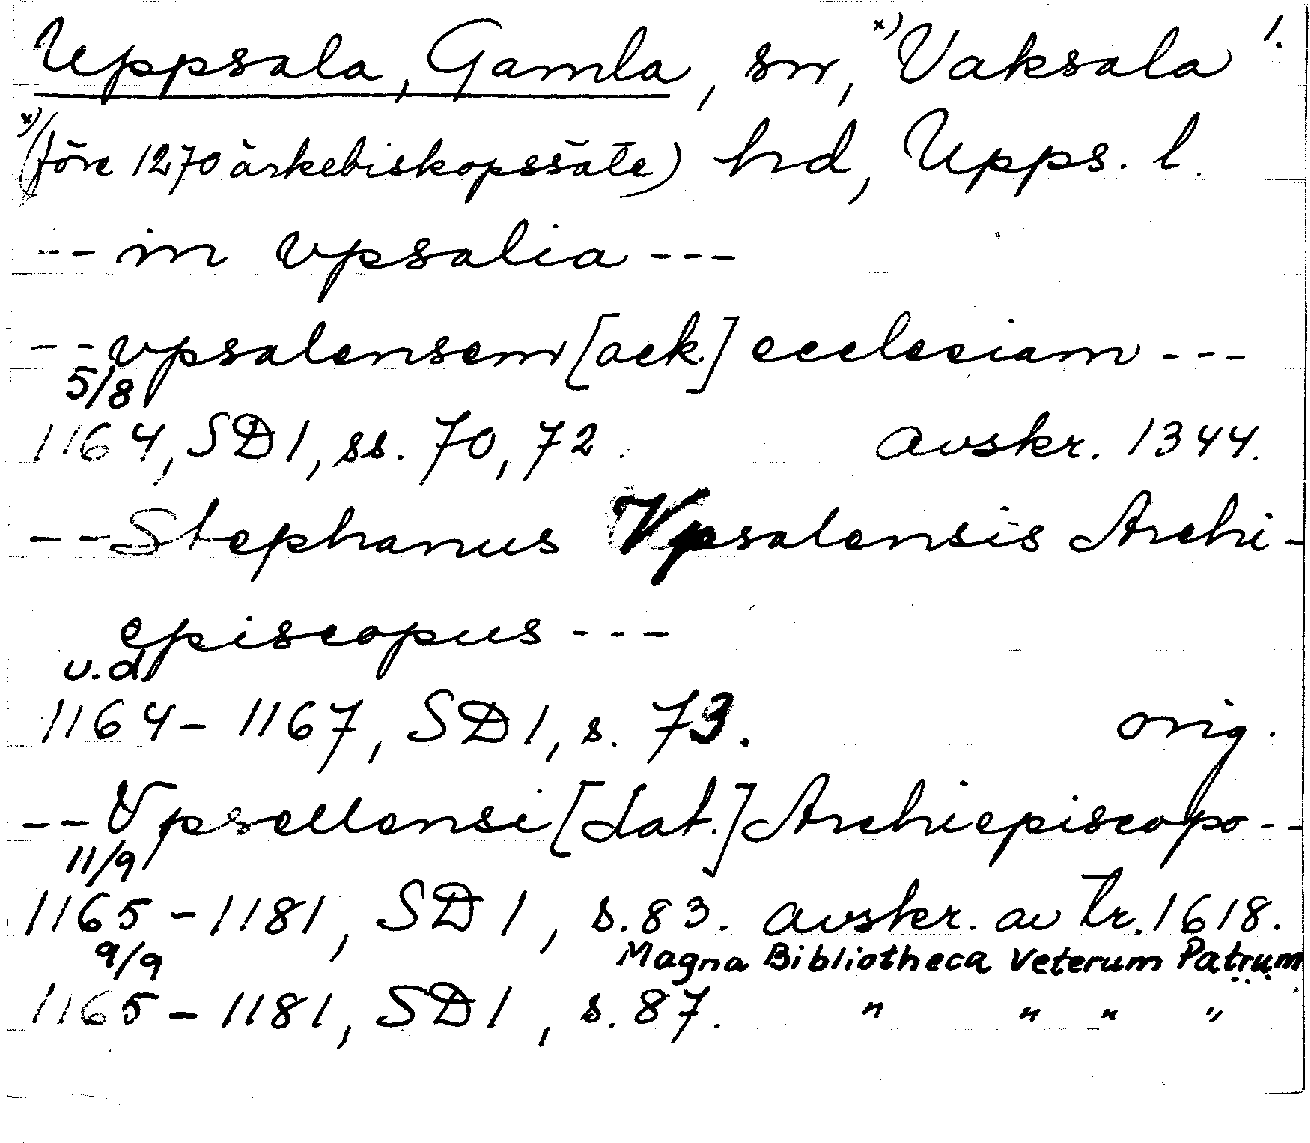 Uppsala, Gamla, sn, x) Vaksala 1.
x) (före 1270 ärkebiskopssäte) hd, Upps. l.
-- in vpsalia ---
-- vpsalensem [ack.] ecclesiam ---
5/8
1164, SD 1, ss. 70, 72. avskr. 1344.
-- Stephanus Vpsalensis Archi-
episcopus ---
u.d.
1164 - 1167, SD 1, s. 73. orig.
-- Vpsellensi [dat.] Archiepiscopo --
11/9
1165 - 1181, SD 1, s. 83. avskr. av tr. 1618.
9/9 Magna Bibliotheca Veterum Patrum
1165 - 1181, SD 1, s. 87. " " " "